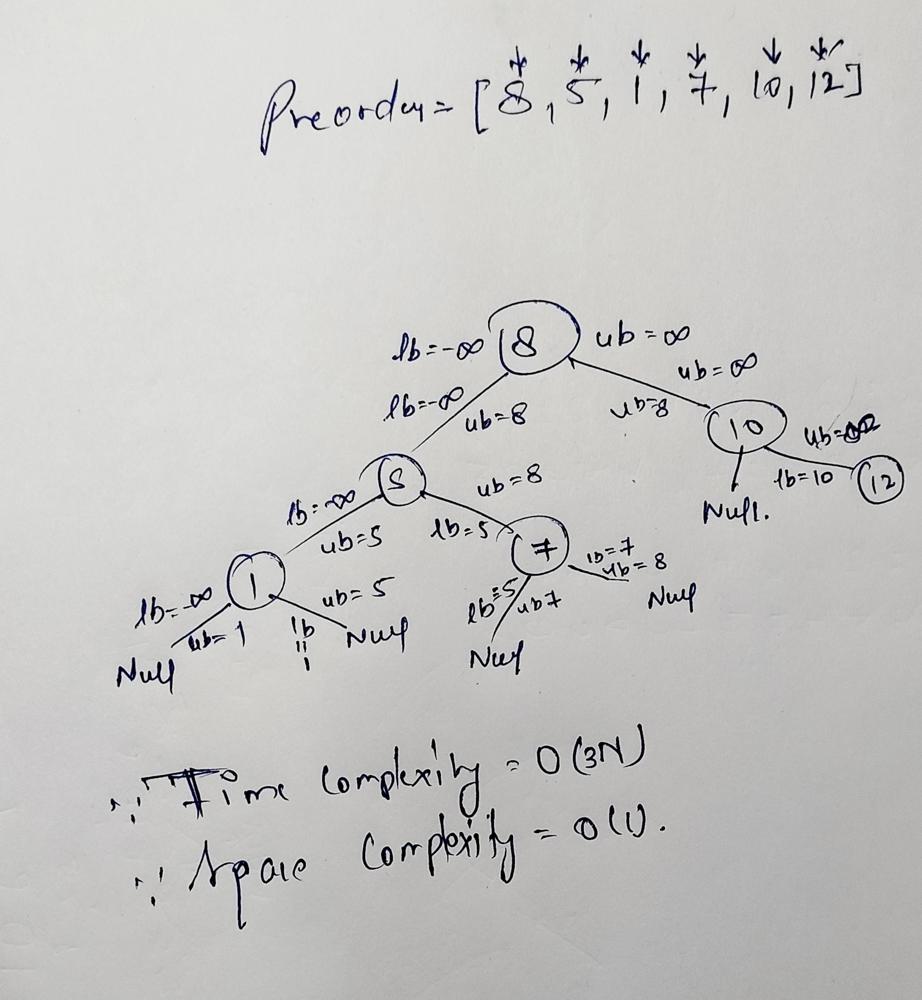 Preorder = [8, 5, 1, 7, 10, 12]
lb=-∞ 8 ub=∞
lb=-∞ ub=8 ub=8 ub=∞
10 ub=∞
lb=-∞ 5 ub=8 Null. lb=10 12
ub=5 lb=5 7 lb=7
ub=8
lb=-∞ 1 ub=5 lb=5 ub7 Null
ub=1 lb=1 Null
Null Null
∵ Time Complexity = O(3N)
∵ Space Complexity = O(1).